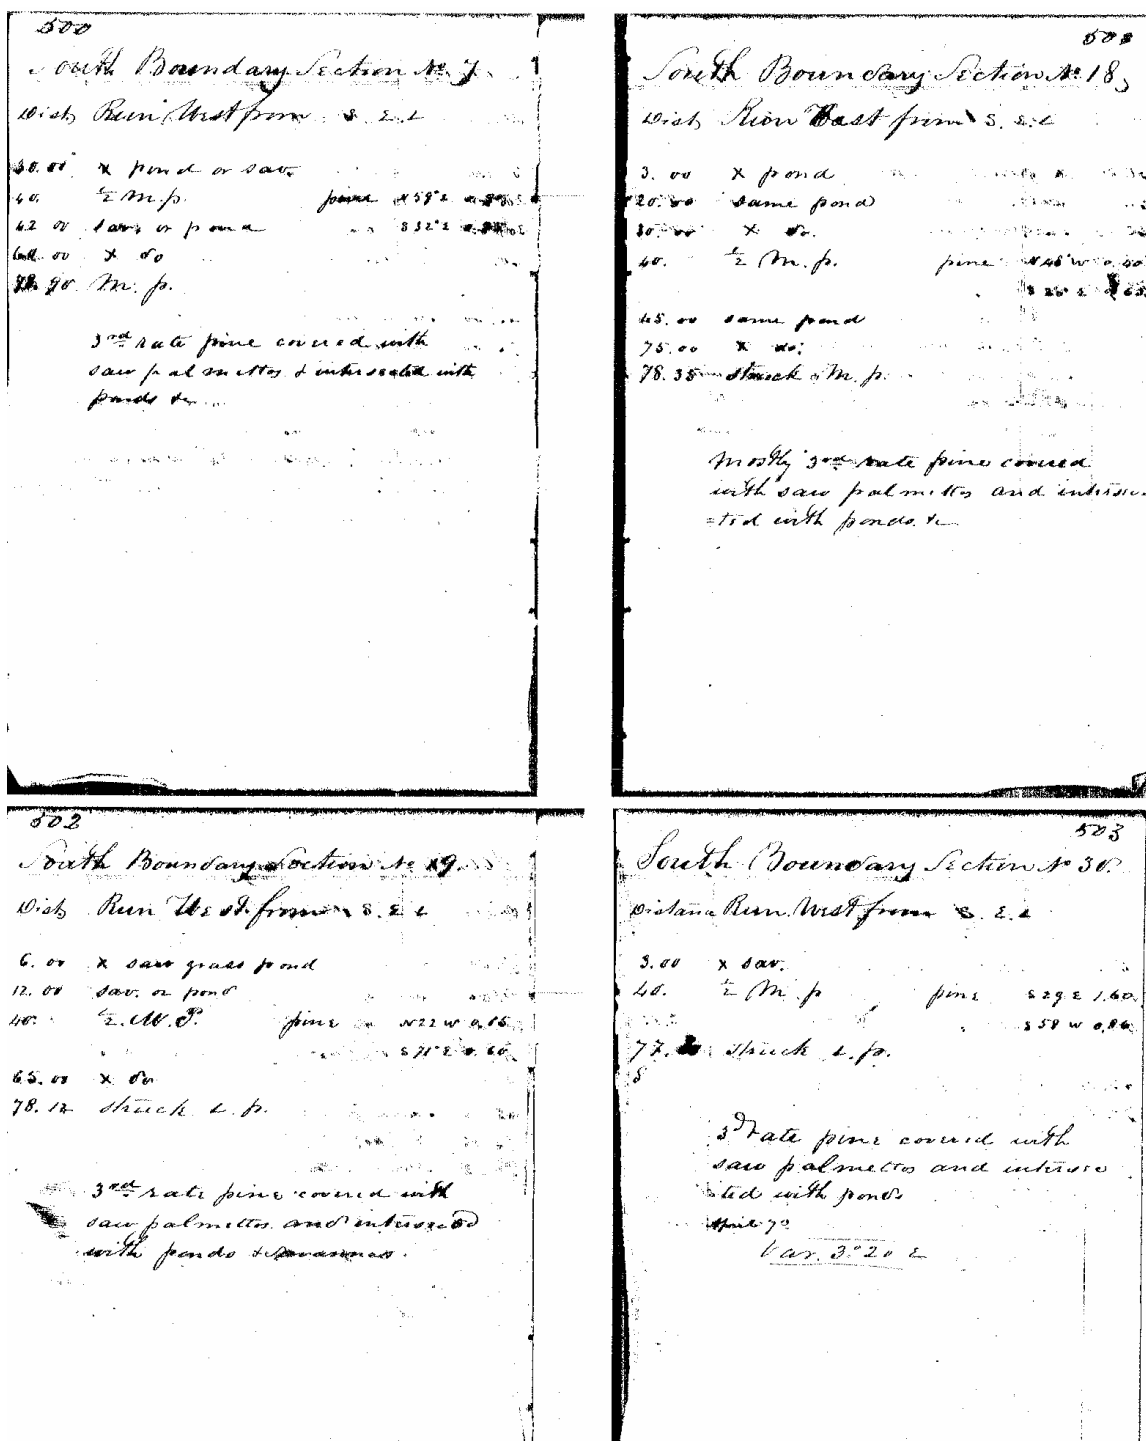 500
South Boundary Section No 7
Dist Run West from S. E. C
30.00 x pond or sav.
40. ½ M. p. pine N 59 E
62 00 sav. or pond S 32 E
00 x do
90 M. p.
3rd rate pine covered with
saw palmettos & intersected with
ponds &c
South Boundary Section No 18
Dist Run West from S. E. C
3. 00 x pond
20.00 same pond
30.00 x do.
40. ½ M. p. pine N 46 W 0.40
S 20 E
45. 00 same pond
75.00 x do.
78. 35 struck M. p.
Mostly 3rd rate pine covered
with saw palmettos and intersec
=ted with ponds. &c
502
South Boundary Section No 19.
Dist Run West from S. E. C
6. 00 x saw grass pond
12. 00 sav. or pond
40. ½ M. P. pine N 22 W 0.65
S 71 E 0.60
65. 00 x do
78. 12 struck L. p.
3rd rate pine covered with
saw palmettos and intersected
with ponds & savannas.
503
South Boundary Section No 30.
Distance Run West from S. E. C
3.00 x sav.
40. ½ M. p pine S 29 E 1.60.
S 58 W 0.86
77. struck L. p.
3d rate pine covered with
saw palmettos and intersec
ted with ponds
April 7th
Var. 3° 20 E